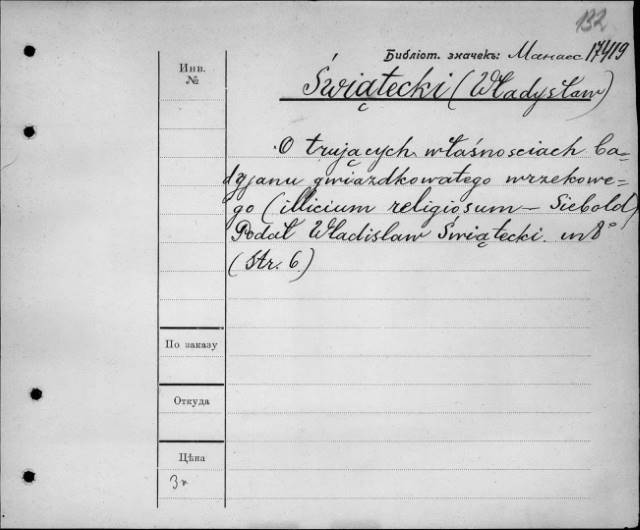 132
Библіот. значекъ: Манасс 17419
Инв.
№
Świątecki (Władysław)
O trujących własnosciach ba-
dyjanu gwiazdkowatego wrzekowe-
go (illicium religiosum – Siebold)
Podał Władislaw Świątecki. w 8°
(Str. 6.)
По заказу
Откуда
Цѣна
3*